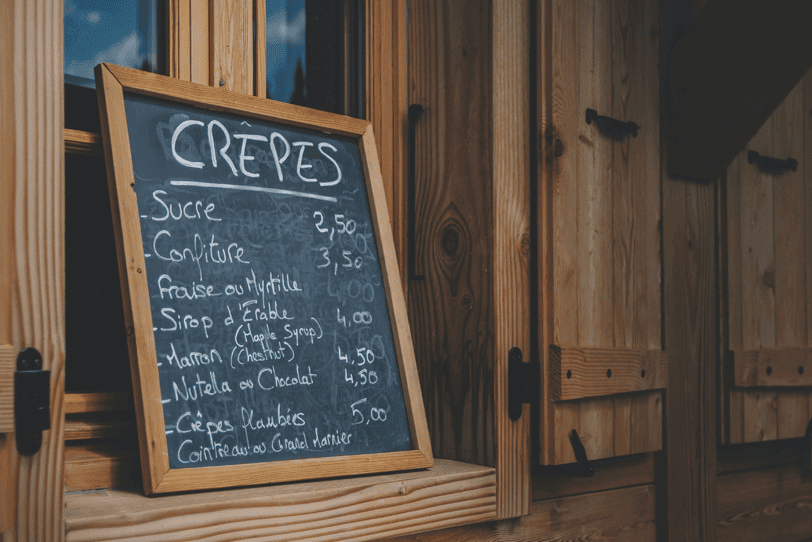 CRÊPES
- Sucre 2,50
- Confiture 3,50
- Fraise ou Myrtille
- Sirop d'Érable 4,00
(Maple Syrop)
- Marron (Chestnut) 4,50
- Nutella ou Chocolat 4,50
- Crêpes flambées 5,00
Cointreau ou Grand Marnier